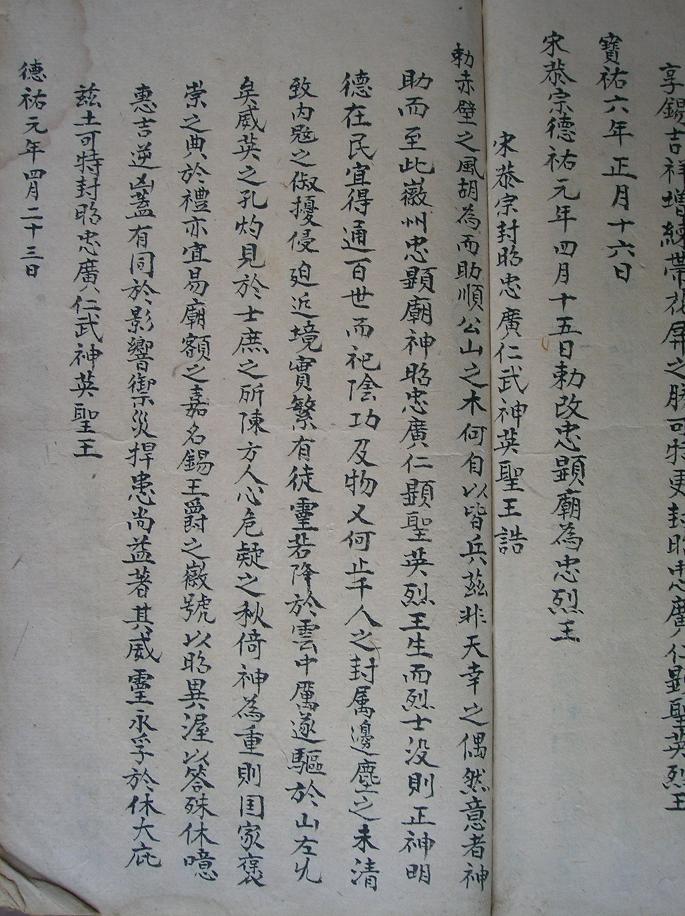 享錫吉祥增練帶花屏之勝可特更封昭忠廣仁顯聖英烈王
寶祐六年正月十六日
宋恭宗德祐元年四月十五日勅改忠顯廟為忠烈王
宋恭宗封昭忠廣仁武神英聖王誥
勅赤壁之風胡為而助順公山之木何自以皆兵茲非天幸之偶然意者神
助而至此徽州忠顯廟神昭忠廣仁顯聖英烈王生而烈士没則正神明
德在民宜得通百世而祀陰功及物又何止千人之封属邊塵之未清
致内冦之俶擾侵迫近境實繁有徒靈若降於雲中厲遂驅於山左
矣威英之孔灼見於士庶之所陳方人心危疑之秋倚神為重則国家褒
崇之典於禮亦宜易廟額之嘉名錫王爵之徽號以昭異渥以答殊休噫
惠吉逆凶蓋有同於影響禦災捍患尚益著其威靈永孚於休大庇
茲土可特封昭忠廣仁武神英聖王
德祐元年四月二十三日